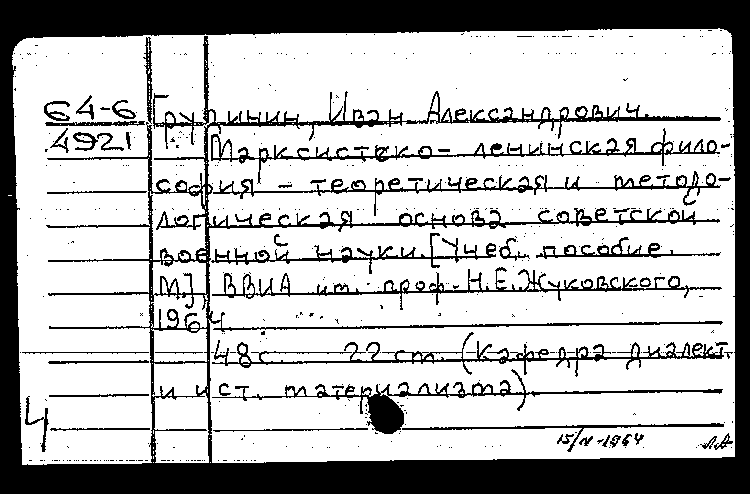 64-6 Групинин, Иван Александрович.
4921 Марксистско-ленинская фило-
софия - теоретическая и методо-
логическая основа советской
военной науки. [Учеб. пособие.
М.], ВВИА им. проф. Н.Е.Жуковского,
1964.
48 с. 22 cm. (Кафедра диалект.
и ист. материализма).
4
15/IV-1964